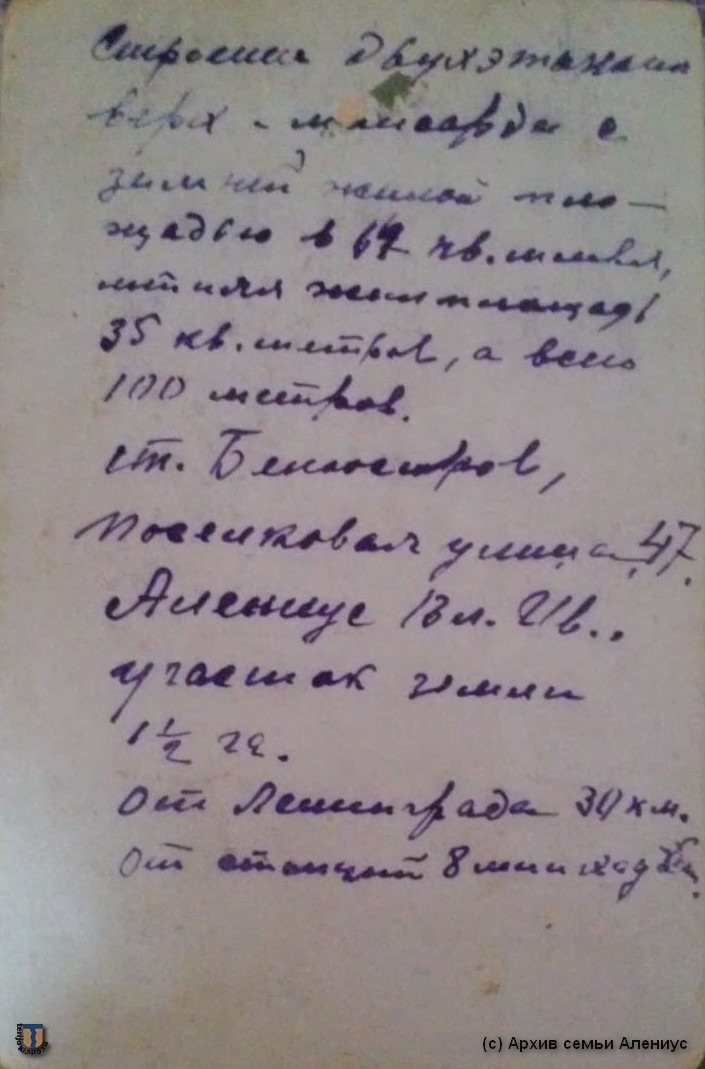 Строение двухэтажное
верх - мансарда с
зимней жилой пло-
щадью в 67 кв. метров,
летняя жилплощадь
35 кв. метров, а всего
100 метров.
ст. Белоостров,
Поселковая улица 47.
Алениус Вл. Ив..
участок земли
1 1/2 га.
От Ленинграда 30 км.
От станции 8 мин ходьбы.
(c) Архив семьи Алениус